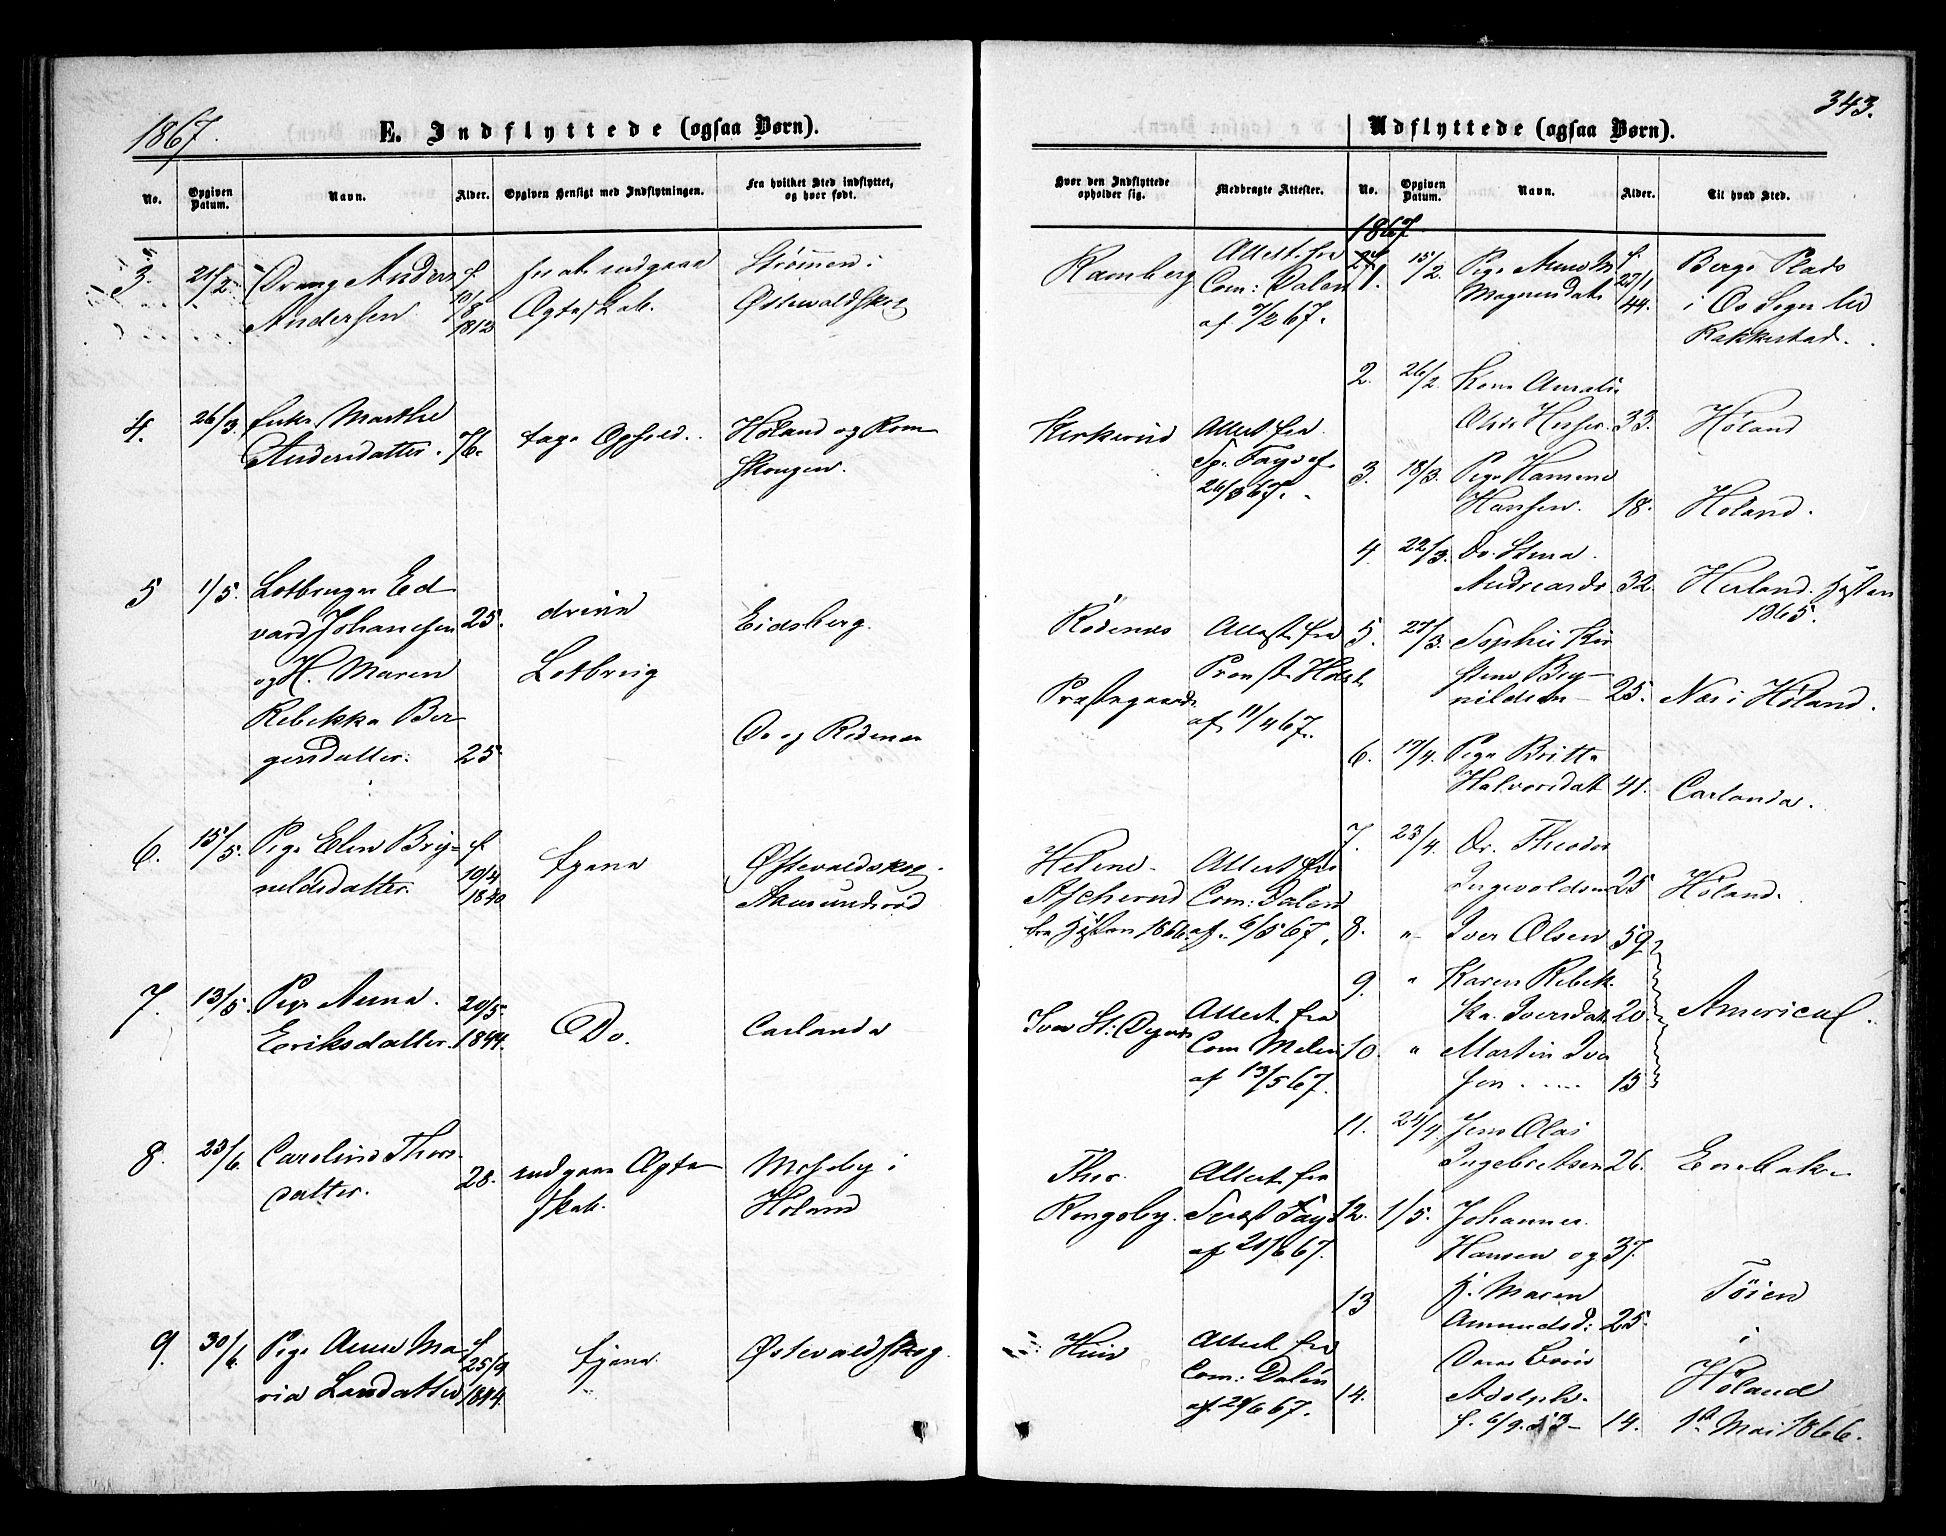 1867.
E. Indflyttede (ogsaa Børn).
No.
Opgiven Datum.
Navn.
Alder.
Opgiven Hensigt med Indflytningen.
Fra hvilket Sted indflyttet, og hvor født.
Hvor den Indflyttede opholder sig.
Medbragte Attester.
3. 21/2 Dreng Anders f
Andersen 10/8 1812
for at indgaa
Ægteskab.
Strømmen i
Østervaldskog
Ramberg
Attest fra
Com: Dalen
af 7/2 67.
4. 26/3. Enke Marthe
Andersdatter. 76.
tage Ophold.
Høland og Rom
skougen.
Kirkerud
Attest fra
Sp. Fayes af
26/3 67.
5 1/5. Lotbruger Ed
vard Johanesen 25.
og H. Maren
Rebekka Ber
gersdatter. 25
drive
Lotbrug
Eidsberg.
Do og Rødenes
Rødenes
Præstegaard
Attest fra
Provst Holst
af 11/4 67.
6. 15/5. Pige Elen Bry=
nildsdatter. f 10/4 1840
tjene
Østevaldskog.
Aamundrød
Helene
Ascherud
fra Høsten 1866.
Attest fra
Com: Dalen
af. 6/5 67.
7. 13/5. Pige Anna
Eriksdatter. 20/5. 1844.
Do.
Carlanda
Iver St: Degnes
Attest fra
Com Melin
af 13/5 67.
8. 23/6. Caroline Thors
datter. 28.
indgaae Ægte
skab.
Moseby i
Høland
Thor
Kongsby.
Attest fra
Sognepræst Faye
af 21/6 67.
9. 30/6. Pige Anne Ma
ria Larsdatter f 25/9 1844.
tjene
Østevaldskog
Huus
Attest fra
Com: Dalen
af 29/6 67.
343.
Udflyttede (ogsaa Børn).
No.
Opgiven Datum.
Navn.
Alder.
Til hvad Sted.
1867
1. 15/2. Pige Anne M f
Magnusdat 27/1 44.
Berge Plads
i Os Sogn ved
Rakkestad.
2. 26/2. Kone Amalie
Olsd. 33. Høland
3. 18/3. Pige Hansine
Hansen. 18. Høland.
4. 22/3. Do Stina
Andreasd. 32. Herland. Høsten
1865.
5. 27/3. Sophie Kir
stine Bry-
nildsen 25. Nes i Høland.
6. 17/4. Pige Britta
Halvorsdat 41. Carlanda.
7. 23/4. Dr. Theodor
Ingvoldsen 25 Høland.
8. " Iver Olsen 59
9. " Karen Rebek
ka Iversdat 20. America.
10. " Martin Iver
sen 13
11. 24/4. Jens Olai
Ingebretsen 26. Enebak
12. 1/5. Johannes
Hansen og 37.
13 H. Maren
Amundsd: 25. Töien
i
Deres Barn
14. Adolph
f. 6/9. 53 - 14. Høland
1st Mai 1866.